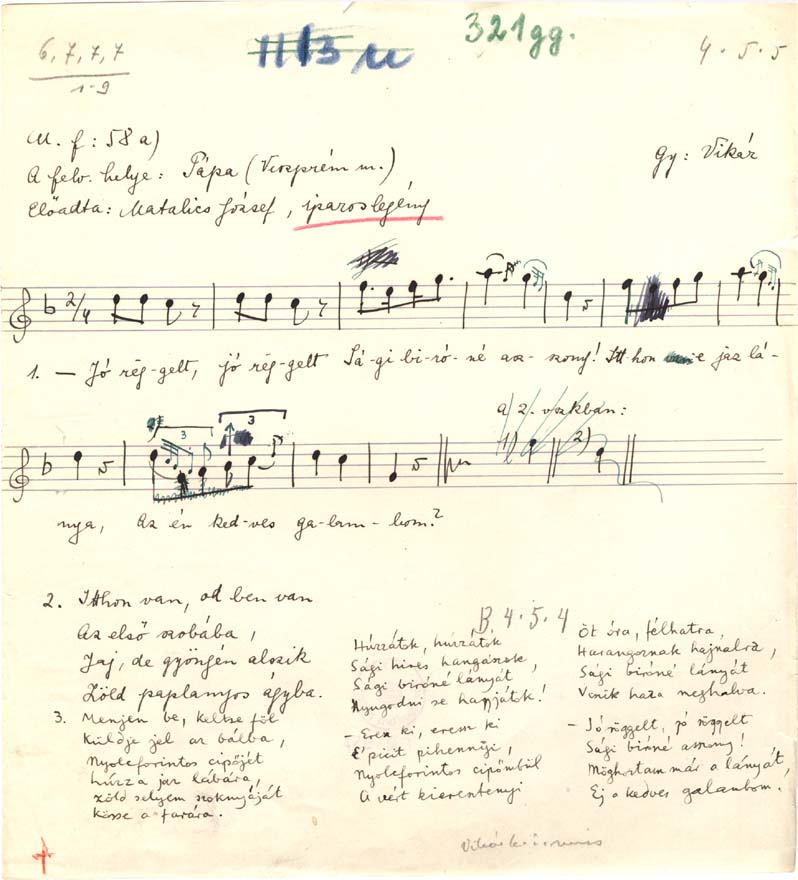 6, 7, 7, 7
1-9
321gg.
4. 5. 5
M. f: 58 a)
Gy: Vikár
A felv. helye: Pápa (Veszprém m.)
Előadta: Matalics József, iparoslegény
2/4
1. — Jó rég-gelt, jó rég-gelt Sá-gi bi-ró-né asz-szony! Itthon e jaz lá-
a 2. vszkban:
3 3
1) 2)
nya, Az én ked-ves ga-lam-bom?
2. Itthon van, od ben van
Az első szobába,
Jaj, de gyöngén alszik
Zöld paplanyos ágyba.
3. Menjen be, keltse föl
Küldje jel az bálba,
Nyolcforintos cipőjét
húzza jaz lábára,
zöld selyem szoknyáját
Kösse a farára.
B. 4. 5. 4
Húzzátok, húzzátok
Sági hires hangászok,
Sági biróné lányát
Nyugodni se haggyátok!
- Eressz ki, eressz ki
E' picit pihennyi,
Nyolcforintos cipőmbül
A vért kieresztenyi
Öt óra, félhatra,
Harangoznak hajnalra,
Sági biróné lányát
Viszik haza meghalva.
- Jó röggelt, jó röggelt
Sági biróné asszony!
Möghoztam már a lányát,
Ej a kedves galambom.